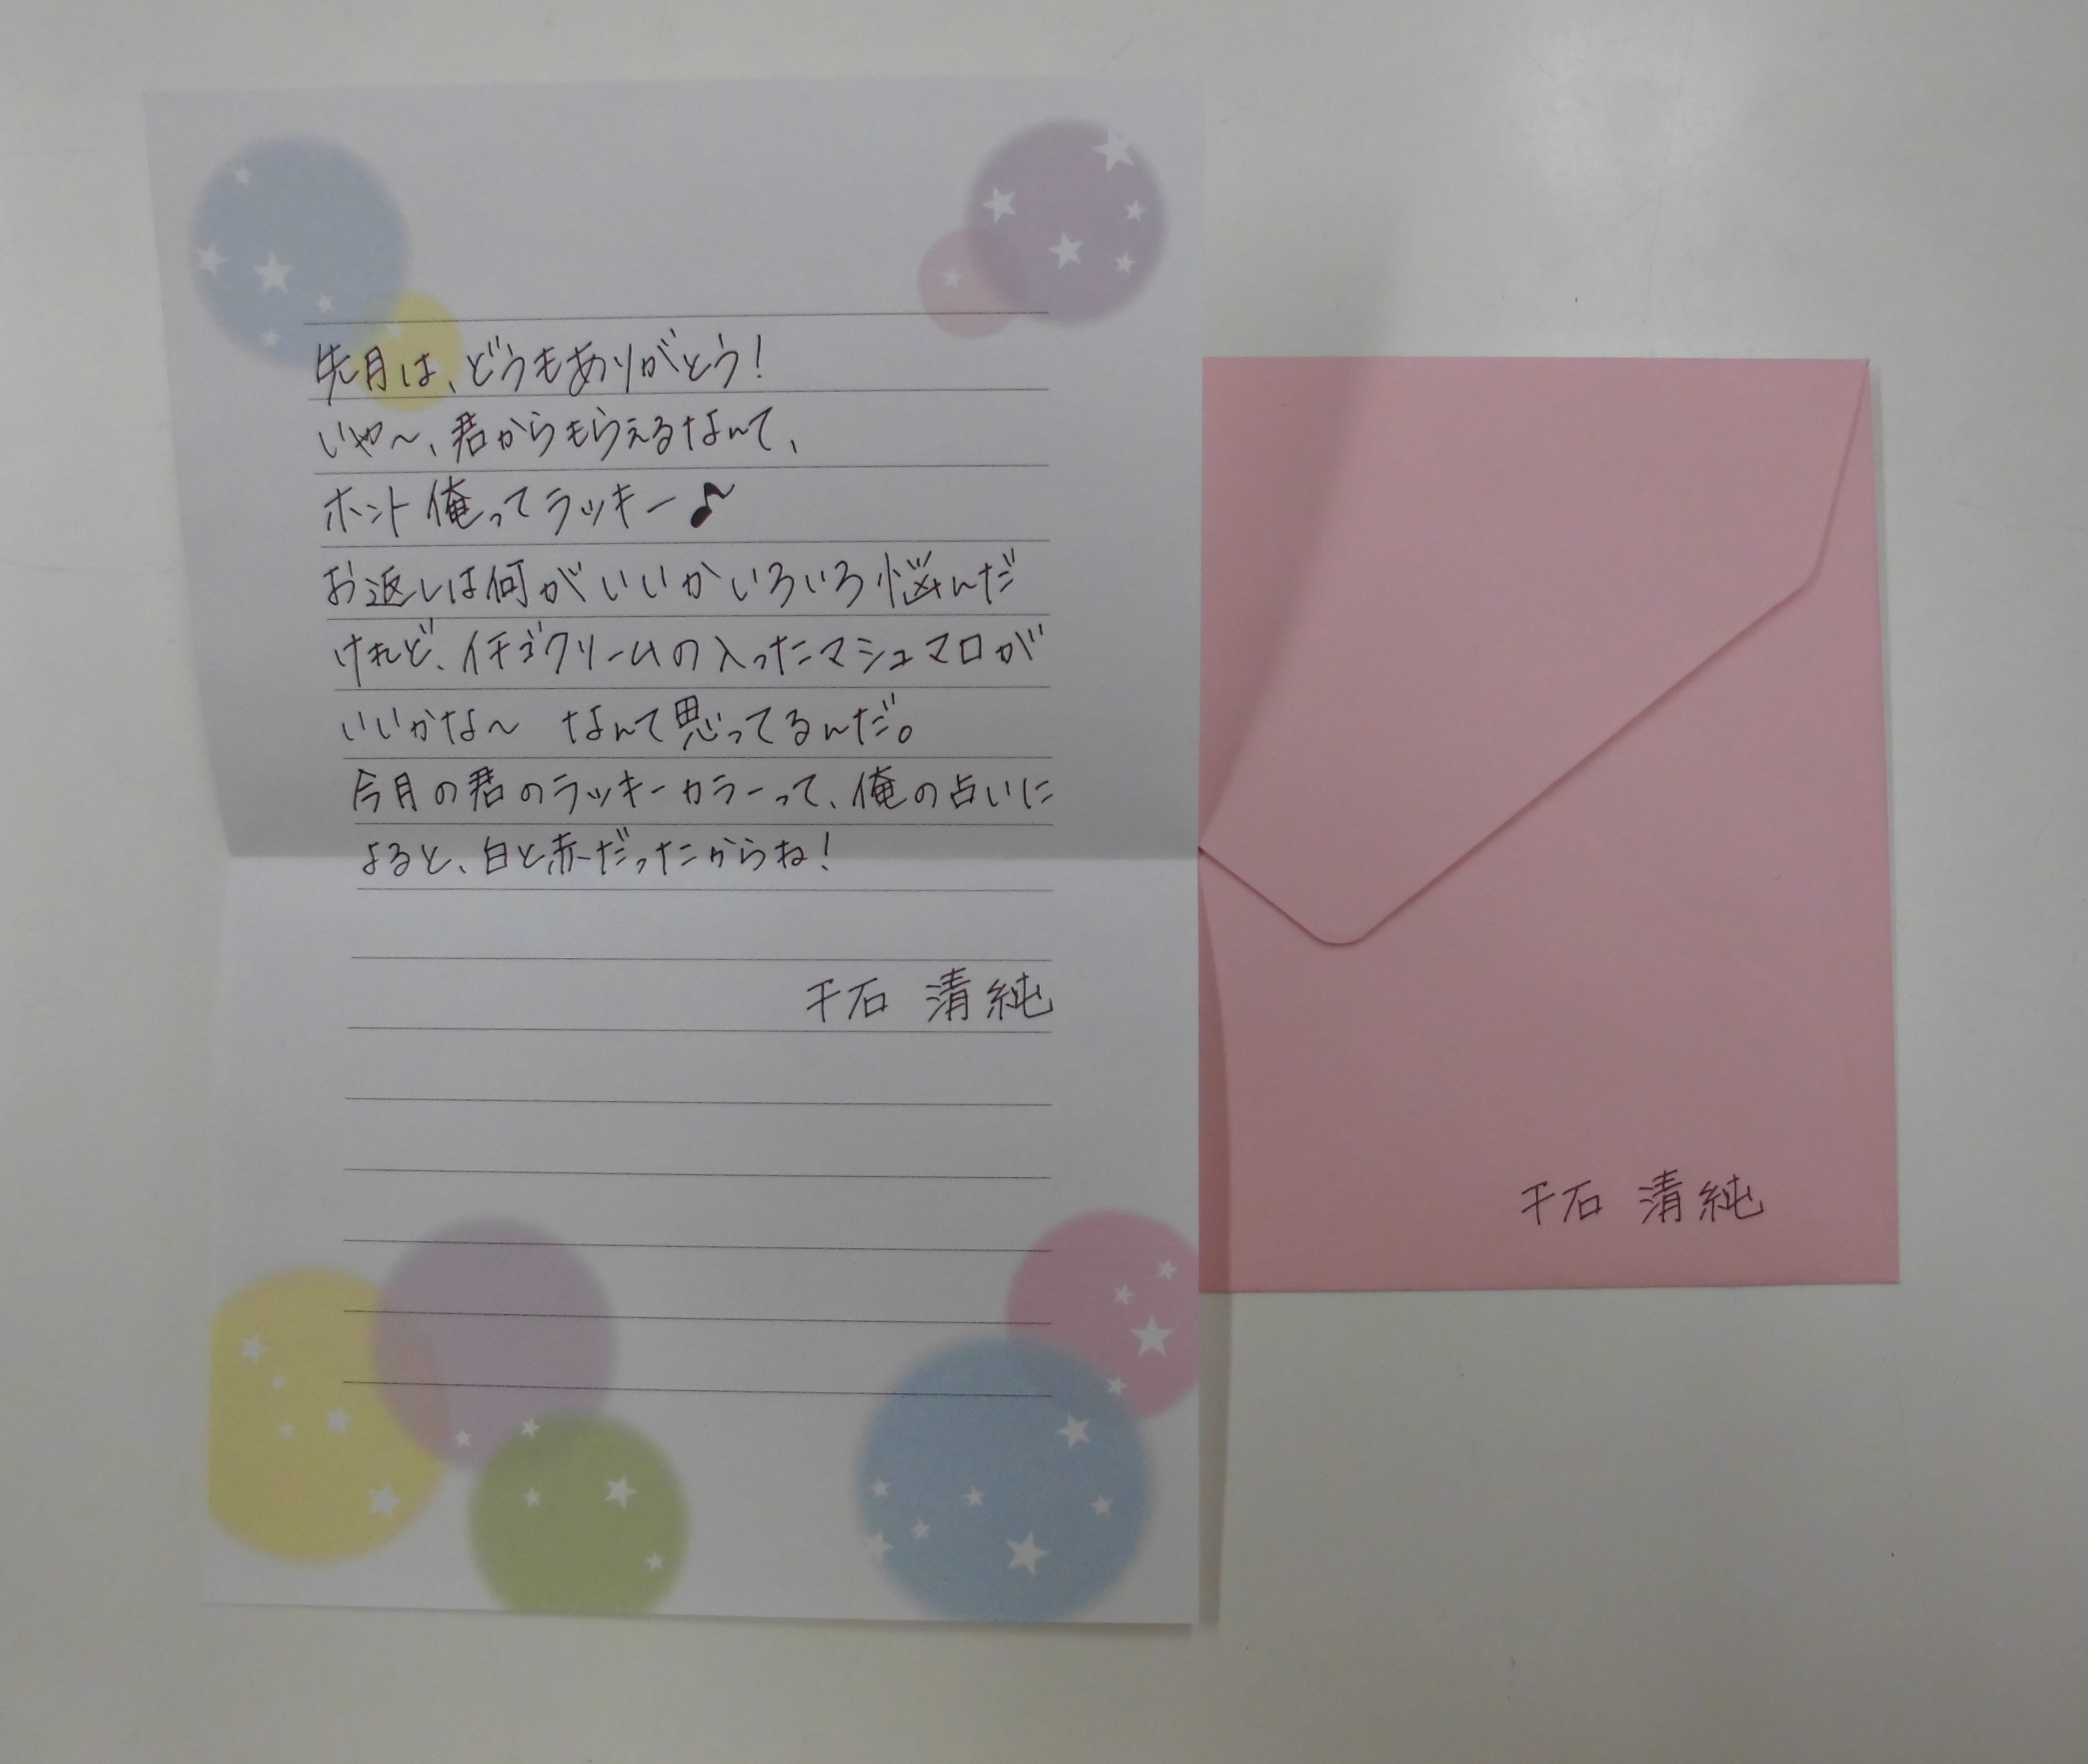 先月は、どうもありがとう!
いや〜、君からもらえるなんて、
ホント俺ってラッキー♪
お返しは何がいいかいろいろ悩んだ
けれど、イチゴクリームの入ったマシュマロが
いいかな〜 なんて思ってるんだ。
今月の君のラッキーカラーって、俺の占いに
よると、白と赤だったからね!
千石 清純
千石 清純